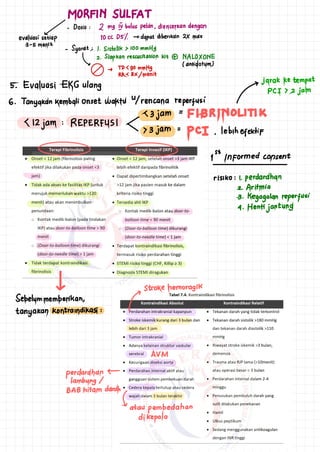 MORFIN SULFAT
- Dosis : 2 mg iv bolus pelan, diencerkan dengan
10 cc D5% → dapat diberikan 2x max
evaluasi setiap
3-5 menit
- Syarat : 1. Sistolik > 100 mmHg
2. Siapkan resuscitation kit ⊕ NALOXONE
(antidotum)
→ TD < 90 mmHg
RR < 8x/menit
5. Evaluasi EKG ulang
6. Tanyakan kembali onset waktu u/ rencana reperfusi
Jarak ke tempat
PCI > 2 jam
< 12 jam : REPERFUSI
< 3 jam = FIBRINOLITIK
> 3 jam = PCI . lebih efektif
Terapi Fibrinolisis
Terapi Invasif (IKP)
• Onset < 12 jam (fibrinolisis paling
efektif jika dilakukan pada onset <3
jam)
• Tidak ada akses ke fasilitas IKP (untuk
merujuk memerlukan waktu >120
menit) atau akan menimbulkan
penundaan:
o Kontak medik-balon (pada tindakan
IKP) atau door-to-balloon time > 90
menit
o (Door-to-balloon time) dikurangi
(door-to-needle time) > 1 jam
• Tidak terdapat kontraindikasi
fibrinolisis
• Onset < 12 jam, setelah onset >3 jam IKP
lebih efektif daripada fibrinolitik
• Dapat dipertimbangkan setelah onset
>12 jam jika pasien masuk ke dalam
kriteria risiko tinggi
• Tersedia ahli IKP
o Kontak medik-balon atau door-to-
balloon time < 90 menit
o (Door-to-balloon time) dikurangi
(door-to-needle time) < 1 jam
• Terdapat kontraindikasi fibrinolisis,
termasuk risiko perdarahan tinggi
• STEMI risiko tinggi (CHF, Killip ≥ 3)
• Diagnosis STEMI diragukan
1st Informed consent
risiko : 1. perdarahan
2. Aritmia
3. Kegagalan reperfusi
4. Henti jantung
Sebelum memberikan,
tanyakan kontraindikasi :
stroke hemoragik
Tabel 7.4. Kontraindikasi fibrinolisis
Kontraindikasi Absolut
Kontraindikasi Relatif
• Perdarahan intrakranial kapanpun
• Stroke iskemik kurang dari 3 bulan dan
lebih dari 3 jam
• Tumor intrakranial
• Adanya kelainan struktur vaskular
serebral AVM
• Kecurigaan diseksi aorta
• Perdarahan internal aktif atau
gangguan sistem pembekuan darah
• Cedera kepala tertutup atau cedera
wajah dalam 3 bulan terakhir
perdarahan
lambung /
BAB hitam darah
atau pembedahan
di kepala
• Tekanan darah yang tidak terkontrol
• Tekanan darah sistolik >180 mmHg
dan tekanan darah diastolik >110
mmHg
• Riwayat stroke iskemik >3 bulan,
demensia
• Trauma atau RJP lama (>10menit)
atau operasi besar < 3 bulan
• Perdarahan internal dalam 2-4
minggu
• Penusukan pembuluh darah yang
sulit dilakukan penekanan
• Hamil
• Ulkus peptikum
• Sedang menggunakan antikoagulan
dengan INR tinggi